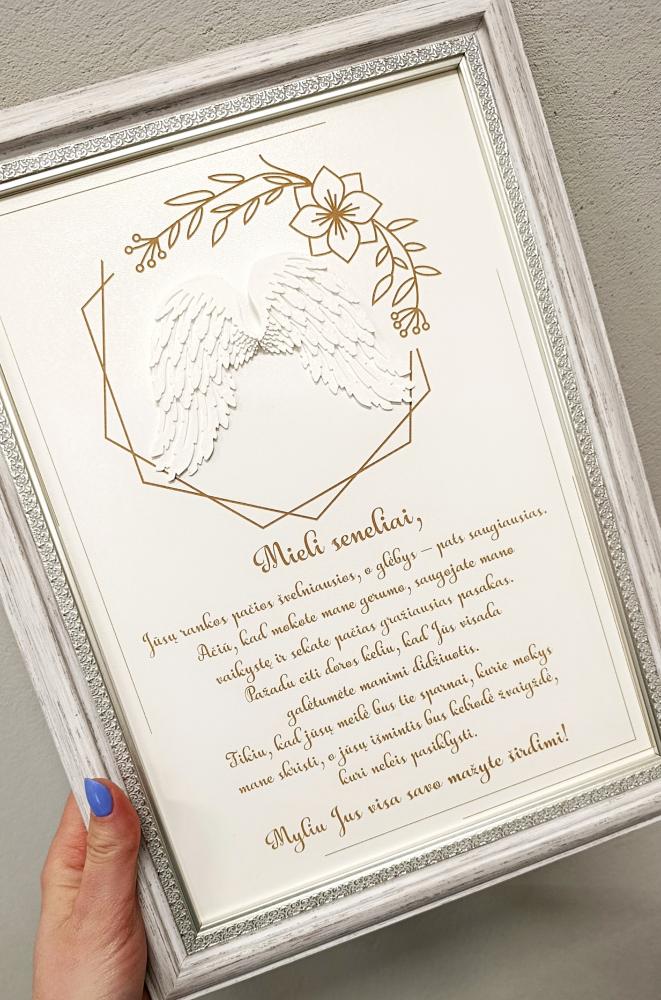 Mieli seneliai,
Jūsų rankos pačios švelniausios, o glėbys – pats saugiausias.
Ačiū, kad mokote mane gerumo, saugojate mano
vaikystę ir sekate pačias gražiausias pasakas.
Pažadu eiti doros keliu, kad Jūs visada
galėtumėte manimi didžiuotis.
Tikiu, kad jūsų meilė bus tie sparnai, kurie mokys
mane skristi, o jūsų išmintis bus kelrodė žvaigždė,
kuri neleis pasiklysti.
Myliu Jus visa savo mažyte širdimi!